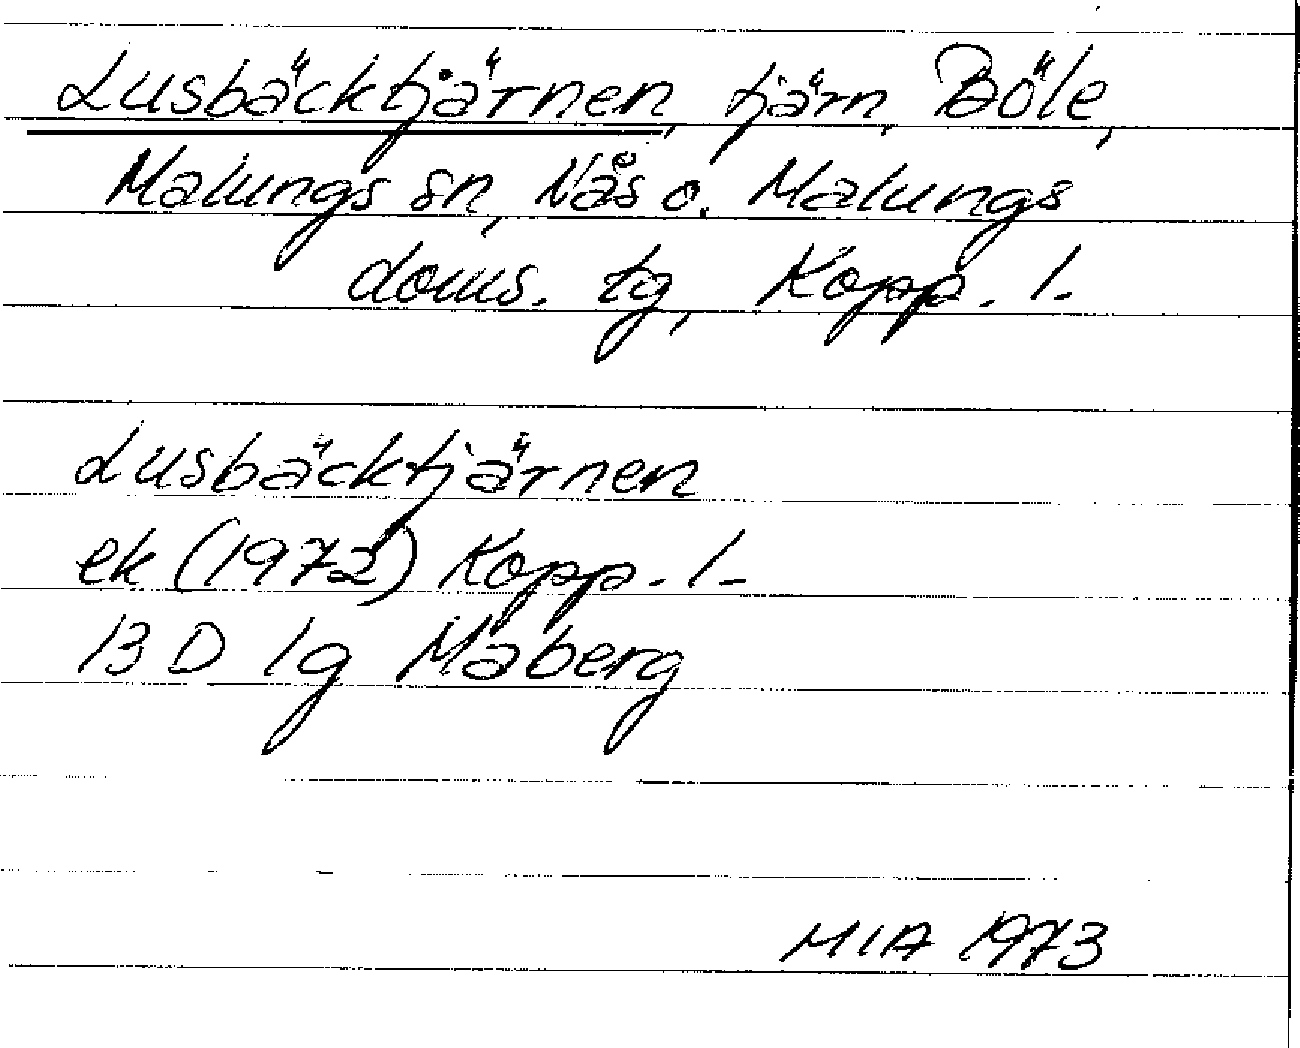 Lusbäcktjärnen, tjärn, Böle,
Malungs sn, Nås o. Malungs
doms. tg, Kopp. l.
Lusbäcktjärnen
ek (1972) Kopp. l.
13 D 1g Måberg
MIA 1973